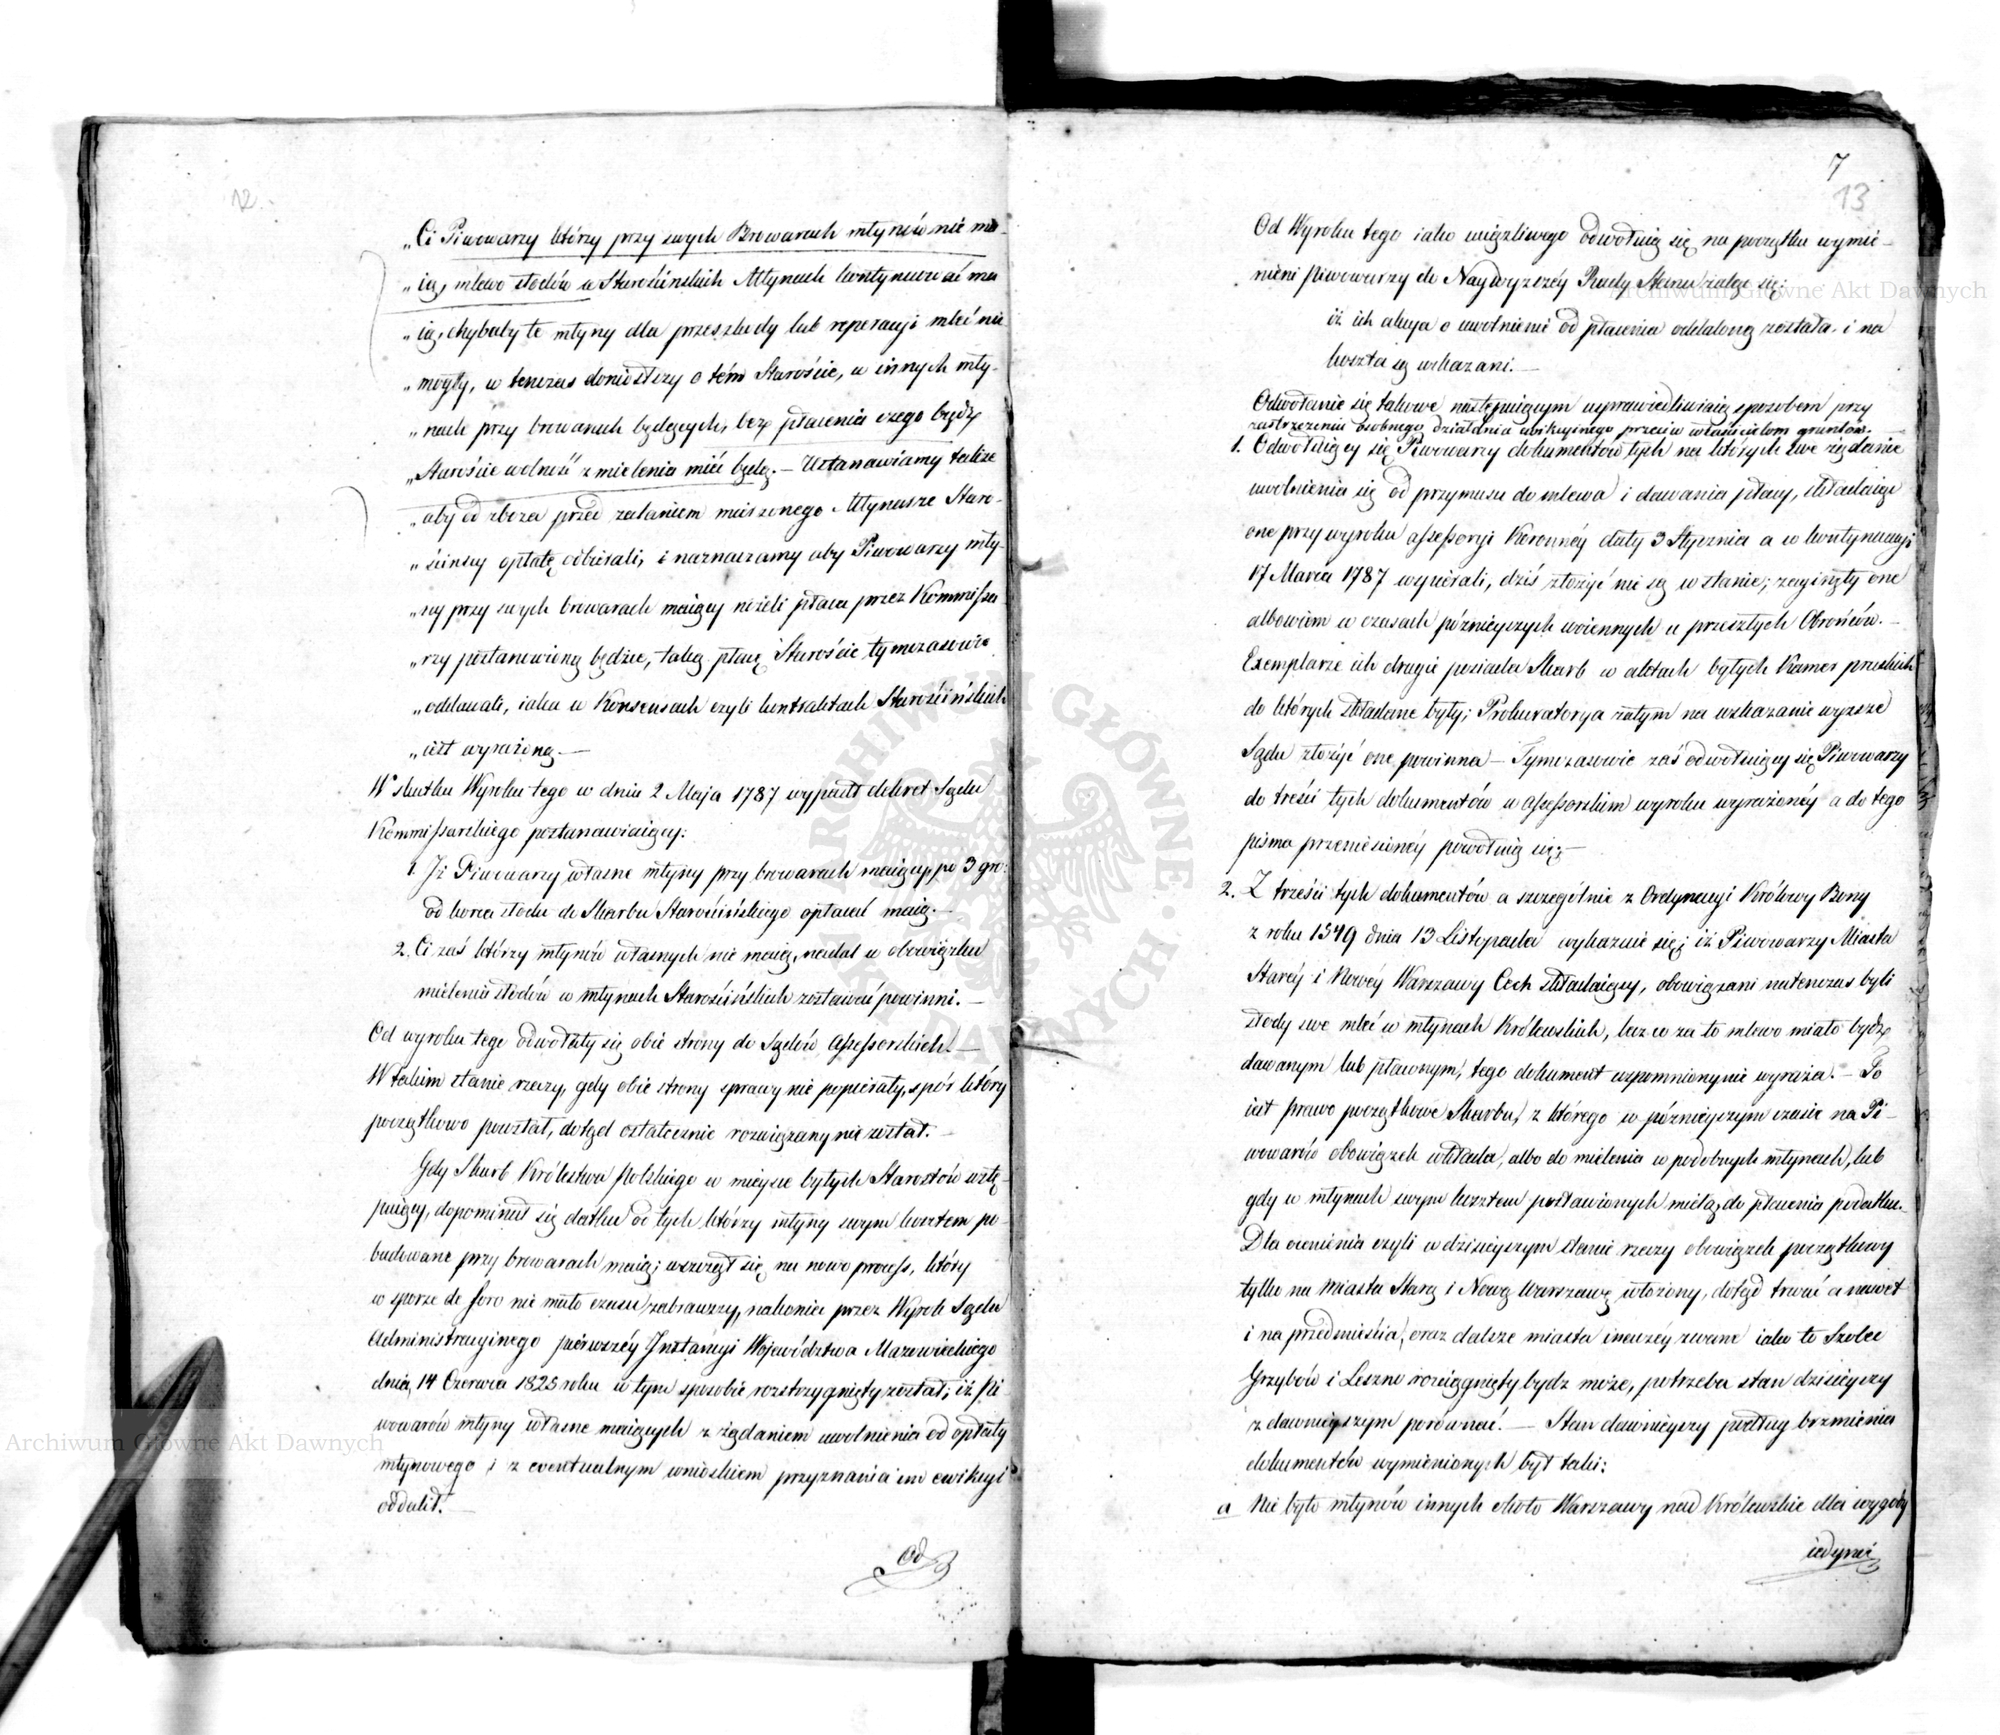 12.
„Ci Piwowarzy którzy przy swych Browarach młynów nie ma„
„ią, mlewo słodów w Starościńskich Młynach kontynuować ma„
„ią, chybaby te młyny dla przeszkody lub reperacyi mleć nie
„mogły, w tenczas doniosłszy o tém Staroście, w innych mły-
„nach przy browarach będących, bez płacenia czego bądź
„Staroście wolność zmielenia mieć będą. — Ustanawiamy także
„aby od zboża przed zalaniem maiszonego Młynarze Staro-
„ścinscy opłatę odbierali, i naznaczamy aby Piwowarzy mły-
„ny przy swych browarach maiący ieżeli płaca przez Kommissa-
„rzy postanowioną będzie, taką płacę Staroście tymczasowie
„oddawali, iaka w Konsensach czyli kontraktach Starościńskich
„iest wyrażona. —
W skutku Wyroku tego w dniu 2 Maja 1787 wypadł dekret Sądu
Kommissarskiego postanawiaiący:
1. Iż Piwowarzy własne młyny przy browarach maiący, po 3 gro:
od korca słodu do Skarbu Starościńskiego opłacać maią. —
2. Ci zaś którzy młynów własnych nie maią, nadal w obowiązku
mielenia słodów w młynach Starościńskich zostawać powinni. —
Od wyroku tego odwołały się obie strony do Sądów Assessorskich. —
W takim stanie rzeczy, gdy obie strony sprawy nie popierały, spór który
początkowo powstał, dotąd ostatecznie rozwiązany nie został. —
Gdy Skarb Królestwa Polskiego w mieysce byłych Starostów wstę-
puiący, dopominał się datku od tych którzy młyny swym kosztem po-
budowane przy browarach maią; wszczął się na nowo process, który
w sporze de foro nie mało czasu zabrawszy, nakoniec przez Wyrok Sądu
Administracyinego pierwszéy Instancyi Województwa Mazowieckiego
dnia 14 Czerwca 1825 roku w tym sposobie rozstrzygnięty został; iż Pi-
wowarów młyny własne maiących z żądaniem uwolnienia od opłaty
młynowego i z ewentualnym wnioskiem przyznania im ewikcyi
oddalił. —
Od
7
13
Od Wyroku tego iako uciążliwego odwołuią się na początku wymie-
nieni piwowarzy do Naywyższéy Rady Stanu żaląc się;
iż ich akcya o uwolnienie od płacenia oddaloną została, i na
koszta są wskazani. —
Odwołanie się takowe następuiącym usprawiedliwiaią sposobem przy
zastrzeżeniu osobnego działania ewikcyinego przeciw właścicielom gruntów. —
1. Odwołuiący się Piwowarzy dokumentów tych na których swe żądanie
uwolnienia się od przymusu do mlewa i dawania płacy, składaiąc
one przy wyroku assessoryi Koronnéy daty 3 Stycznia a w kontynuacyi
17 Marca 1787 wspierali, dziś złożyć nie są w stanie; zaginęły one
albowiem w czasach późnieyszych woiennych u przeszłych Obrońców. —
Exemplarze ich drugie posiada Skarb w aktach byłych Kamer pruskich
do których składane były; Prokuratorya zatym na wskazanie wyższe
Sądu złożyć one powinna — Tymczasowie zaś odwołuiący się Piwowarzy
do treści tych dokumentów w assessorskim wyroku wyrażonéy a do tego
pisma przeniesionéy powołuią się; —
2. Z treści tych dokumentów a szczególnie z Ordynacyi Królowy Bony
z roku 1549 dnia 13 Listopada wykazuie się; iż Piwowarzy Miasta
Staréy i Nowéy Warszawy Cech składaiący, obowiązani natenczas byli
słody swe mleć w młynach Królewskich, lecz co za to mlewo miało bydź
dawanym lub płaconym, tego dokument wspomniony nie wyraża. — To
iest prawo początkowe Skarbu, z którego w późnieyszym czasie na Pi-
wowarów obowiązek wkłada, albo do mielenia w podobnych młynach, lub
gdy w młynach swym kosztem postawionych mielą, do płacenia podatku. —
Dla ocenienia czyli w dzisieyszym stanie rzeczy obowiązek początkowy
tylko na Miasta Starą i Nową Warszawę włożony, dotąd trwać a nawet
i na przedmieścia, oraz dalsze miasta inaczéy zwane iako to Szolec
Grzybów i Leszno rozciągnięty bydz może, potrzeba stan dzisieyszy
z dawnieyszym porównać. — Stan dawnieyszy podług brzmienia
dokumentów wymienionych był taki:
a Nie było młynów innych około Warszawy nad Królewskie dla wygody
iedynéi
Archiwum Główne Akt Dawnych
Archiwum Główne Akt Dawnych
ARCHIWUM GŁÓWNE AKT DAWNYCH